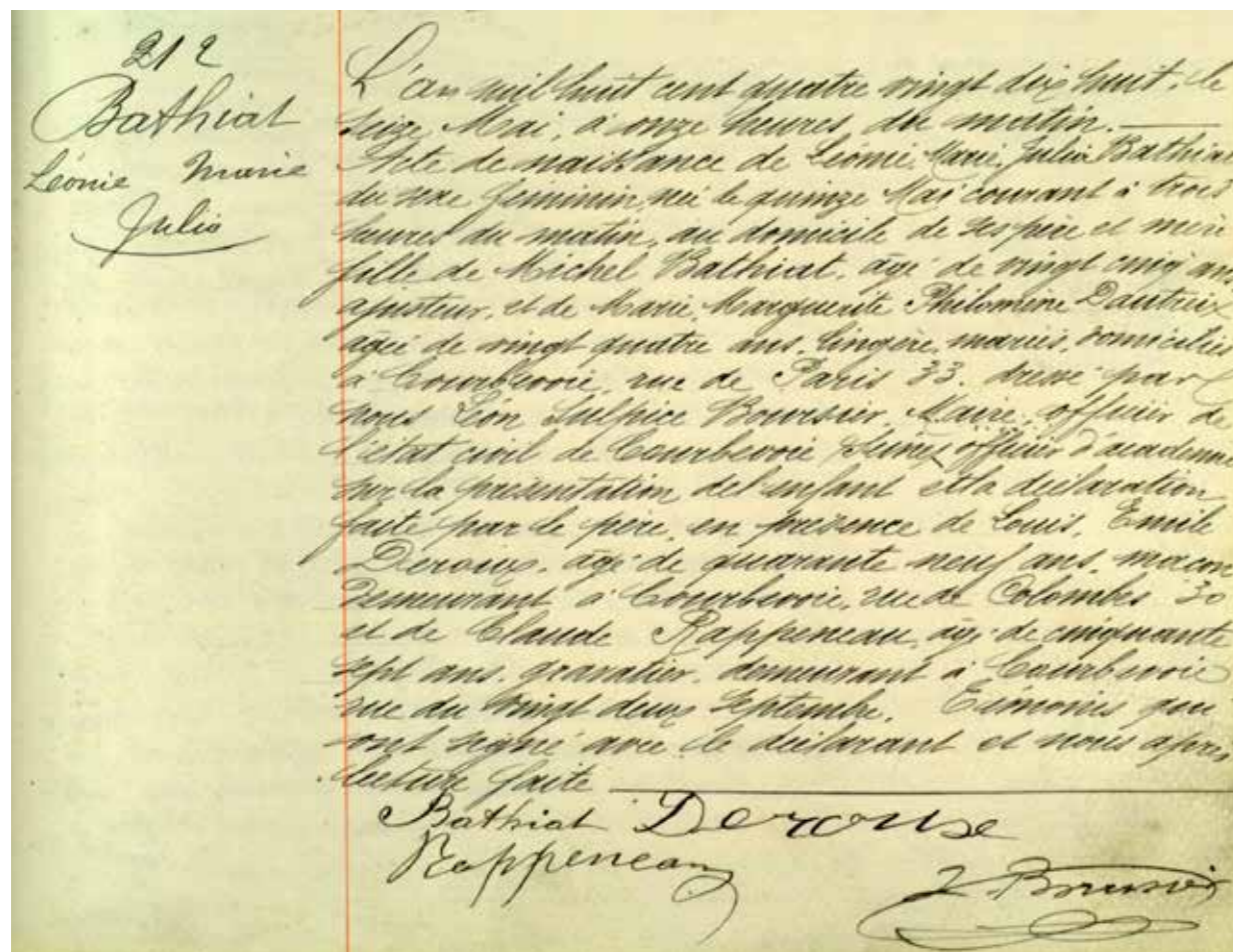 212
Bathiat
Léonie Marie
Julia
L'an mil huit cent quatre vingt dix huit, le
seize Mai, à onze heures du matin.
Acte de naissance de Léonie, Marie, Julia Bathiat
du sexe feminin née le quinze Mai courant à trois
heures du matin, au domicile de ses père et mère
fille de Michel Bathiat, agé de vingt cinq ans
ajusteur, et de Marie, Marguerite Philomène Dautreix
agée de vingt quatre ans, lingère, mariés, domiciliés
à Courbevoie, rue de Paris 33. dressé par
nous Léon Sulpice Boursier, Maire, officier de
l'état civil de Courbevoie (Seine) officier d'academie
sur la présentation de l'enfant et la déclaration
faite par le père, en présence de Louis, Emile
Deroux, agé de quarante neuf ans, macon
demeurant à Courbevoie, rue de Colombes 30
et de Claude Rappeneau, agé de cinquante
sept ans, gravatier, demeurant à Courbevoie
rue du vingt deux Septembre. Témoins qui
ont signé avec le déclarant et nous après
lecture faite
Bathiat Deroux
Rappeneau
L. Boursier